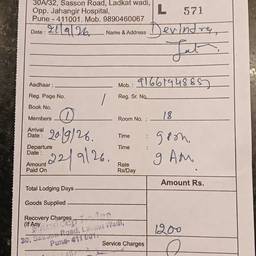 30A/32, Sasson Road, Ladkat wadi,
Opp. Jahangir Hospital,
Pune - 411001. Mob. 9890460067
L 571
Date : 21/9/26 Name & Address Devindra,
Jat
Aadhaar : Mob. :
Reg. Page No. Reg. Sr. No.
Book No.
Members : 1 Room No. : 18
Arrival
Date : 20/9/26. Time : 9 Pm
Departure
Date : 22/9/26. Time : 9 AM.
Amount
Paid On
Rate
Rs/Day
Amount Rs.
Total Lodging Days
Goods Supplied
Recovery Charges 1200
(If Any
30, Sasson Road, Ladkat Wadi,
Pune- 411 001.
Service Charges